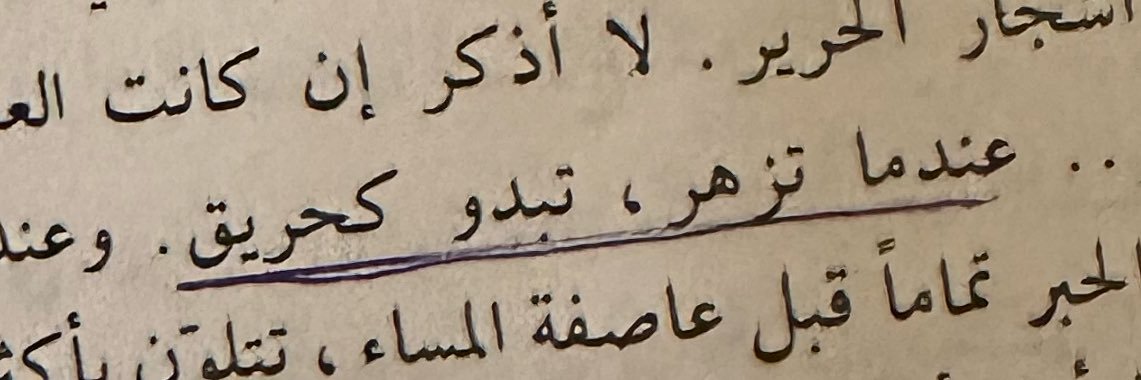 أشجار الحرير . لا أذكر إن كانت
.. عندما تزهر ، تبدو كحريق . وعند
الحبر تماماً قبل عاصفة المساء ، تتلوّن بأكثر